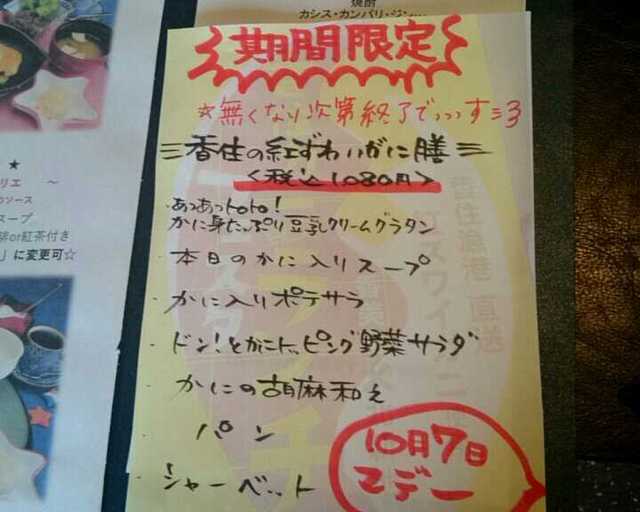 焼酎
カシス・カンパリ・ジン...
期間限定
☆無くなり次第終了でっっす=3
香住の紅ずわいがに膳
<税込1080円>
・あつあつトロトロ!
かに身たっぷり豆乳クリームグラタン
・本日のかに入りスープ
・かに入りポテサラ
・ドン!とかにトッピング野菜サラダ
・かにの胡麻和え
・パン
・シャーベット
10月7日
マデー
★
リエ ～
のソース
スープ
琲or紅茶付き
」に変更可☆